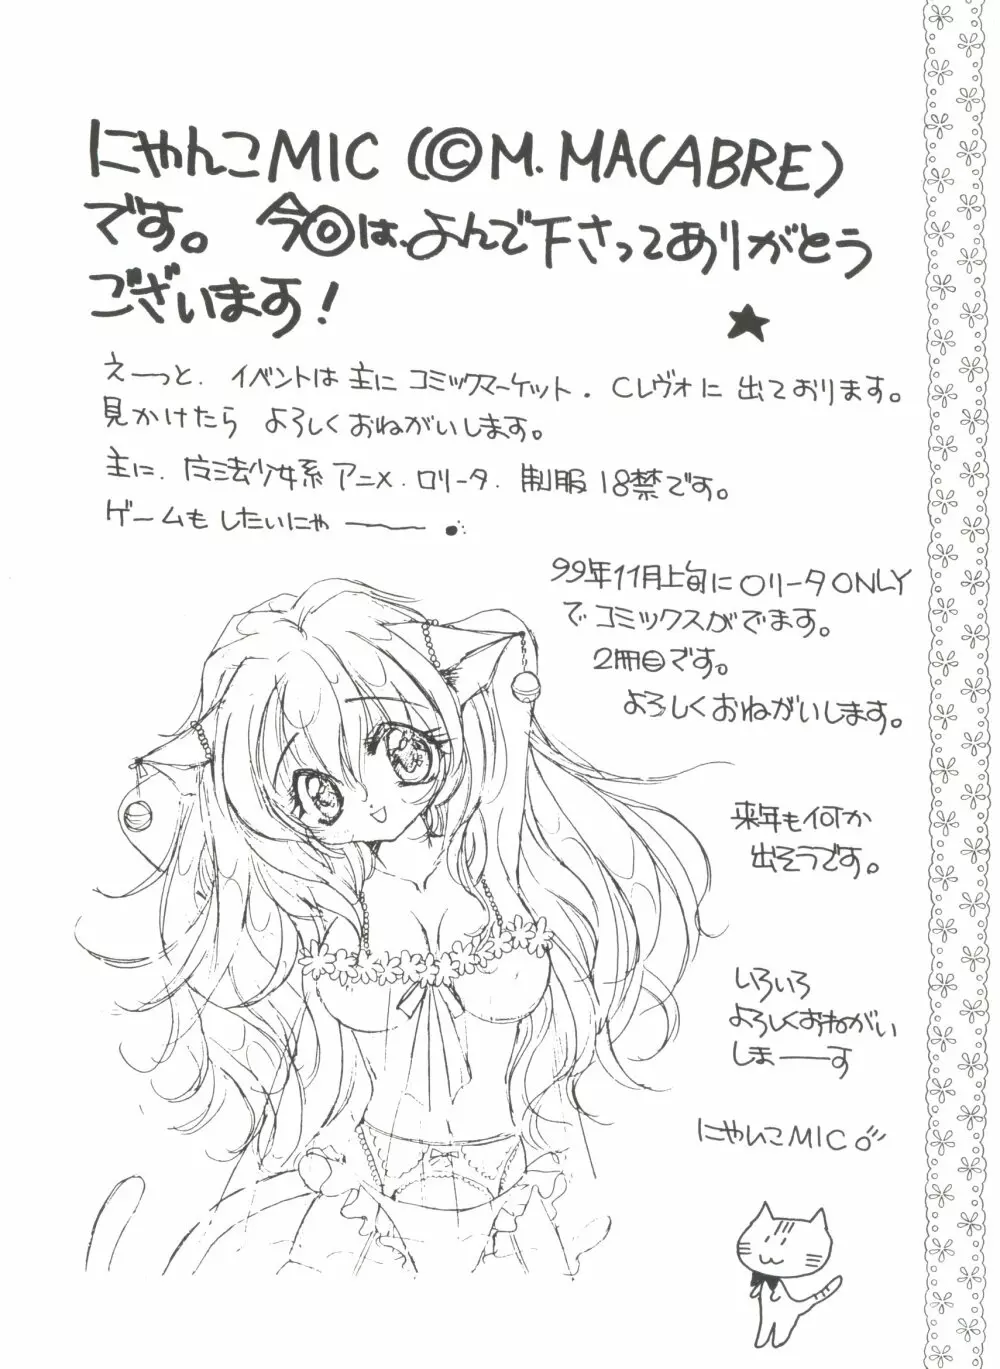 にゃんこMIC (©M. MACABRE)
です。 今回は、よんで下さってありがとう
ございます!
えーっと. イベントは主にコミックマーケット. Cレヴォに出ております。
見かけたら よろしくおねがいします。
主に. 魔法少女系アニメ. ロリータ. 制服 18禁です。
ゲームもしたいにゃ———
99年11月上旬にロリータONLY
でコミックスがでます。
2冊目です。
よろしくおねがいします。
来年も何か
出そうです。
いろいろ
よろしくおねがい
しま——す
にゃんこMIC